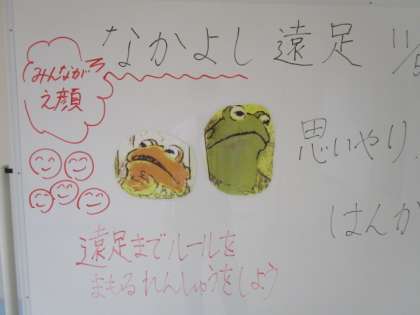 なかよし 遠足 11/
みんなが
え顔
思いやり
はんか
遠足までルールを
まもるれんしゅうをしよう